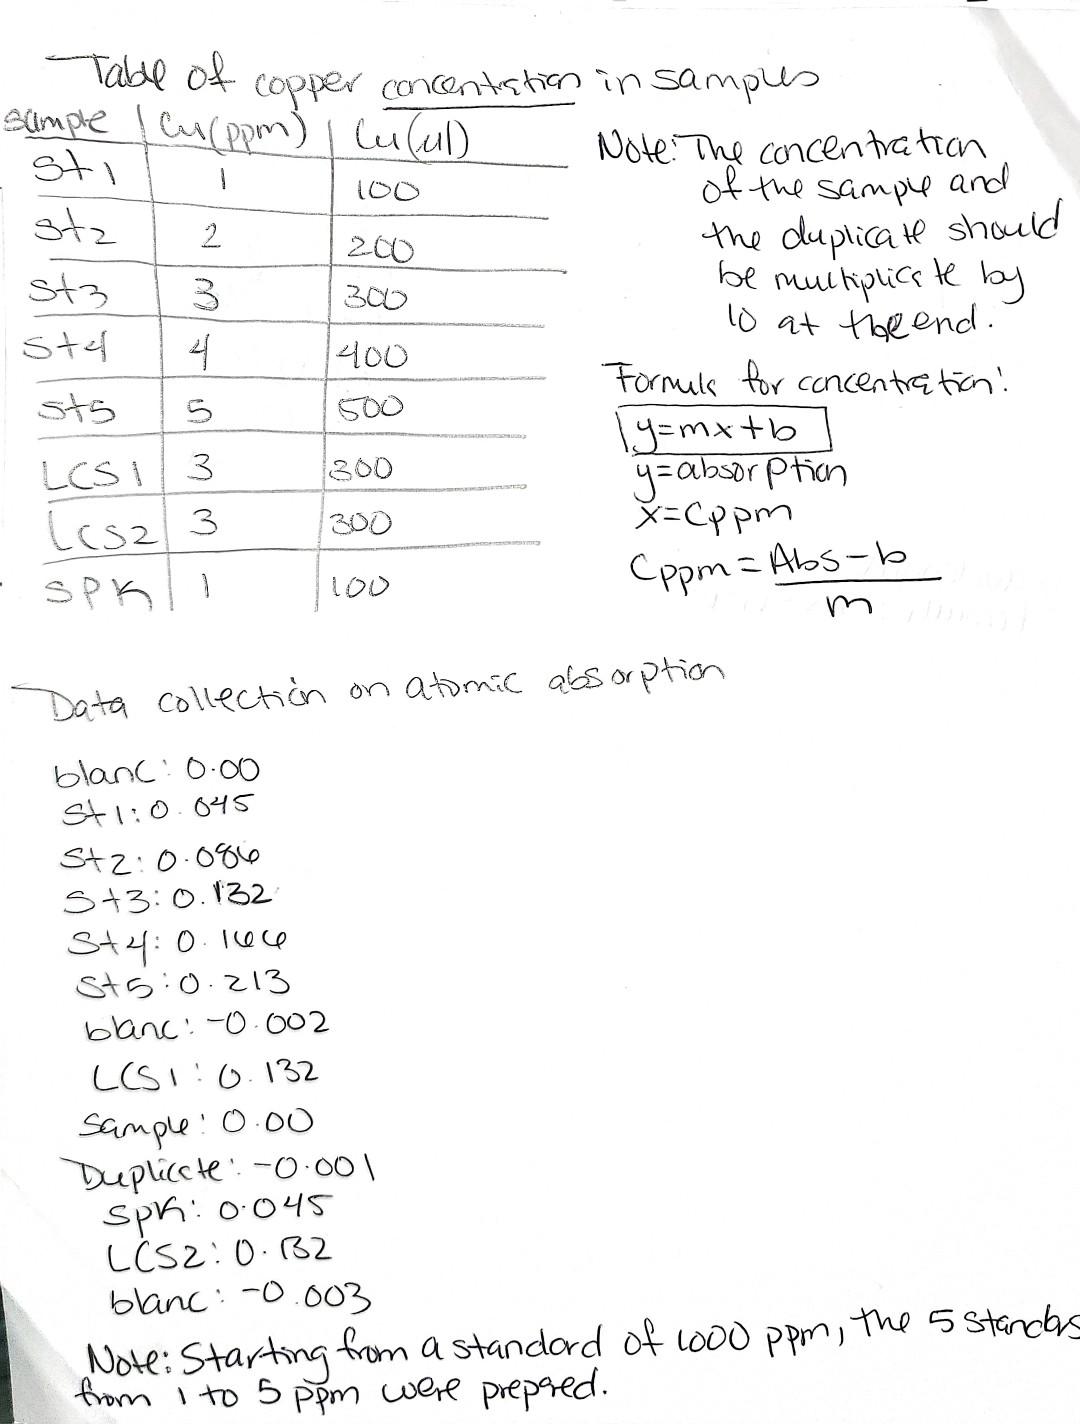 Table of copper concentration in samples
sample Cu(ppm) Cu(ul)
St1 1 100
St2 2 200
St3 3 300
St4 4 400
St5 5 500
LCS1 3 300
LCS2 3 300
SPK 1 100
Note: The concentration
of the sample and
the duplicate should
be multiplicate by
10 at the end.
Formula for concentration:
y=mx+b
y=absorption
x=Cppm
Cppm = Abs-b
m
Data collection on atomic absorption
blanc: 0.00
St1: 0.045
St2: 0.086
St3: 0.132
St4: 0.166
St5: 0.213
blanc: -0.002
LCS1: 0.132
Sample: 0.00
Duplicate: -0.001
Spk: 0.045
LCS2: 0.132
blanc: -0.003
Note: Starting from a standard of 1000 ppm, the 5 standars
from 1 to 5 ppm were prepared.